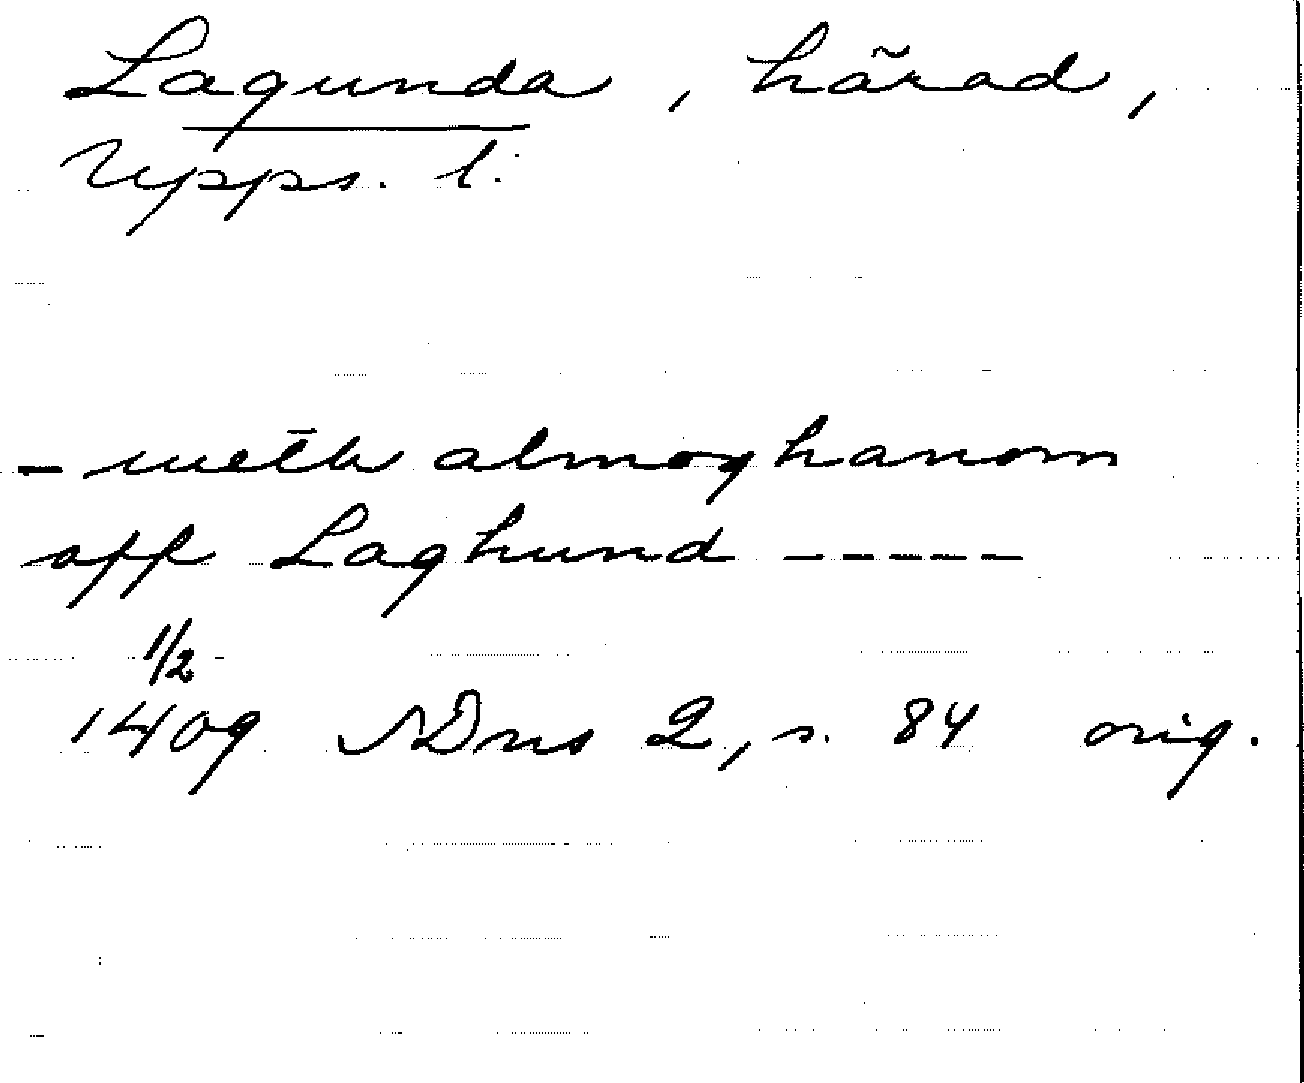 Lagunda, härad,
Upps. l.
- meth almoghanom
aff Laghund -----
1/2
1409 SDns 2, s. 84 orig.